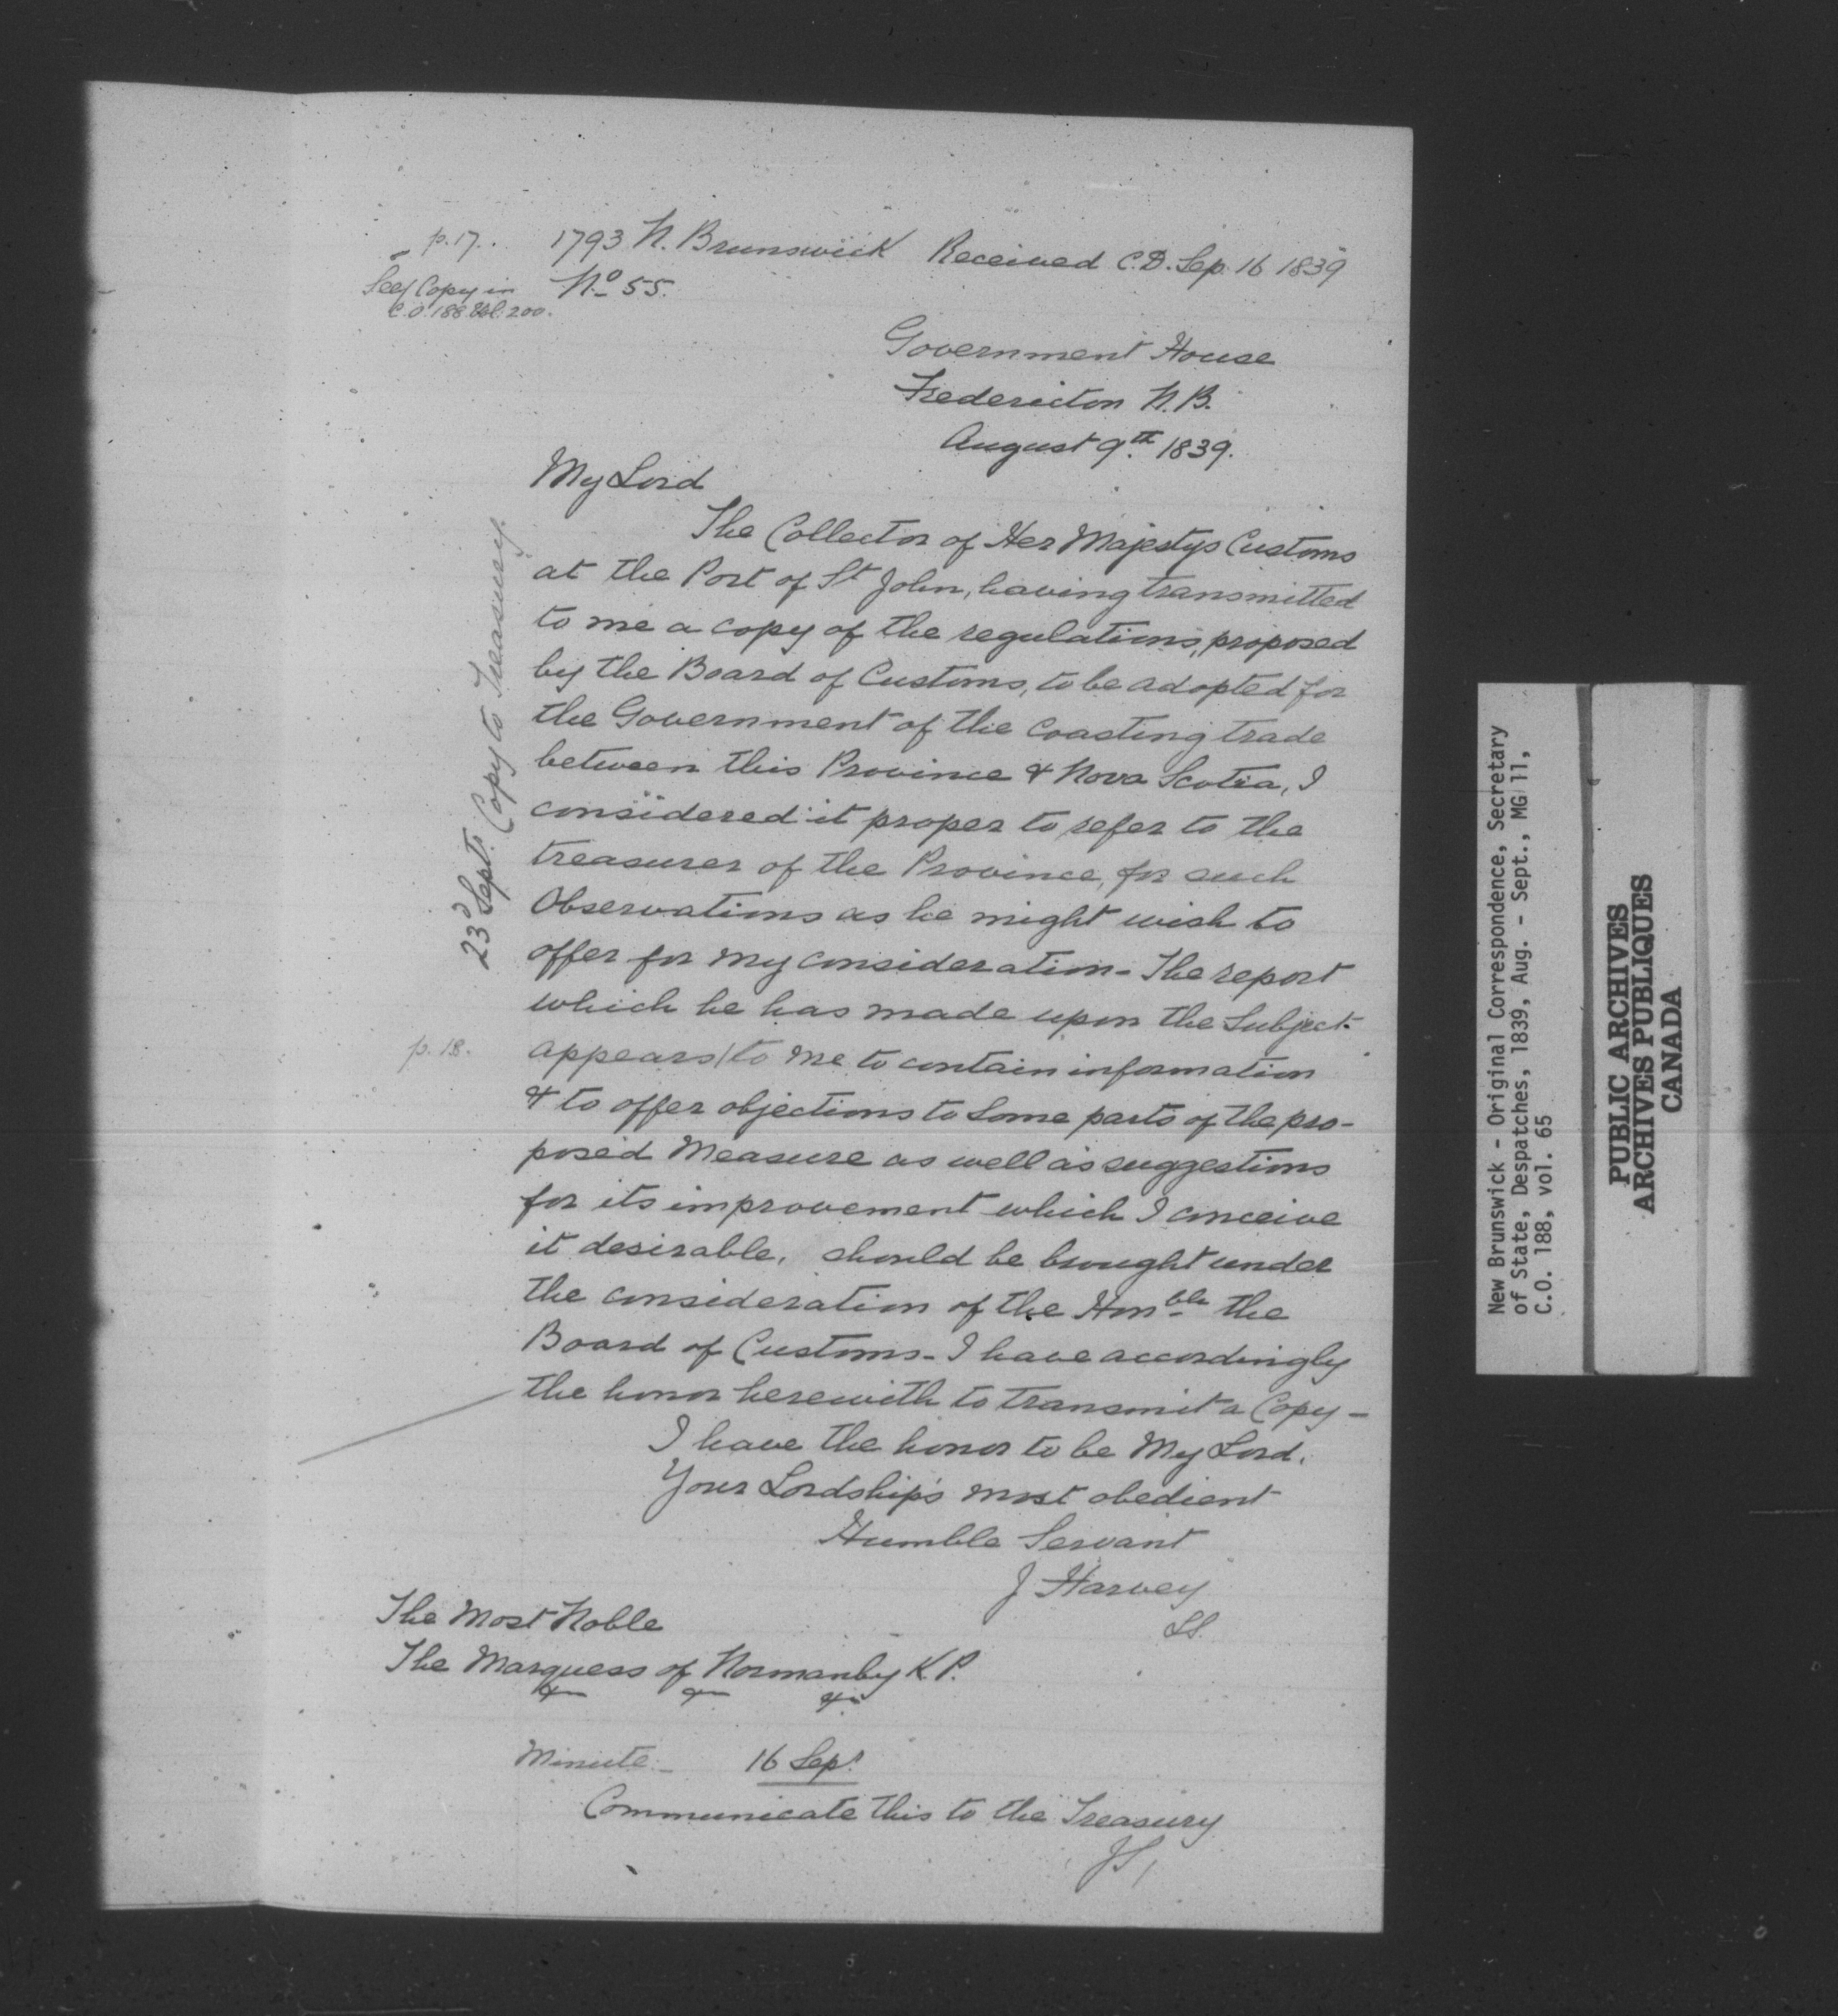 p. 17. 1793 N. Brunswick Received C.D. Sep. 16 1839
See Copy in Nº 55.
C.O. 188 Vol. 200.
Government House
Fredericton N.B.
August 9th 1839.
My Lord
The Collector of Her Majestys Customs
at the Port of St John, having transmitted
to me a copy of the regulations, proposed
by the Board of Customs, to be adopted for
the Government of the Coasting trade
between this Province & Nova Scotia, I
considered it proper to refer to the
treasurer of the Province, for such
Observations as he might wish to
offer for my consideration - The report
which he has made upon the Subject
p. 18. appears / to me to contain information
& to offer objections to Some parts of the pro-
posed Measure as well as suggestions
for its improvement which I conceive
it desirable, should be brought under
the consideration of the Honble the
Board of Customs - I have accordingly
the honor herewith to transmit a Copy -
I have the honor to be My Lord,
Your Lordship's most obedient
Humble Servant
J Harvey
The Most Noble
The Marquess of Normanby K.P.
&c &c &c
Minute - 16 Sepr
Communicate this to the Treasury
JS /
23d Sept. Copy to Treasury.
New Brunswick - Original Correspondence, Secretary
of State, Despatches, 1839, Aug. - Sept., MG 11,
C.O. 188, vol. 65
PUBLIC ARCHIVES
ARCHIVES PUBLIQUES
CANADA